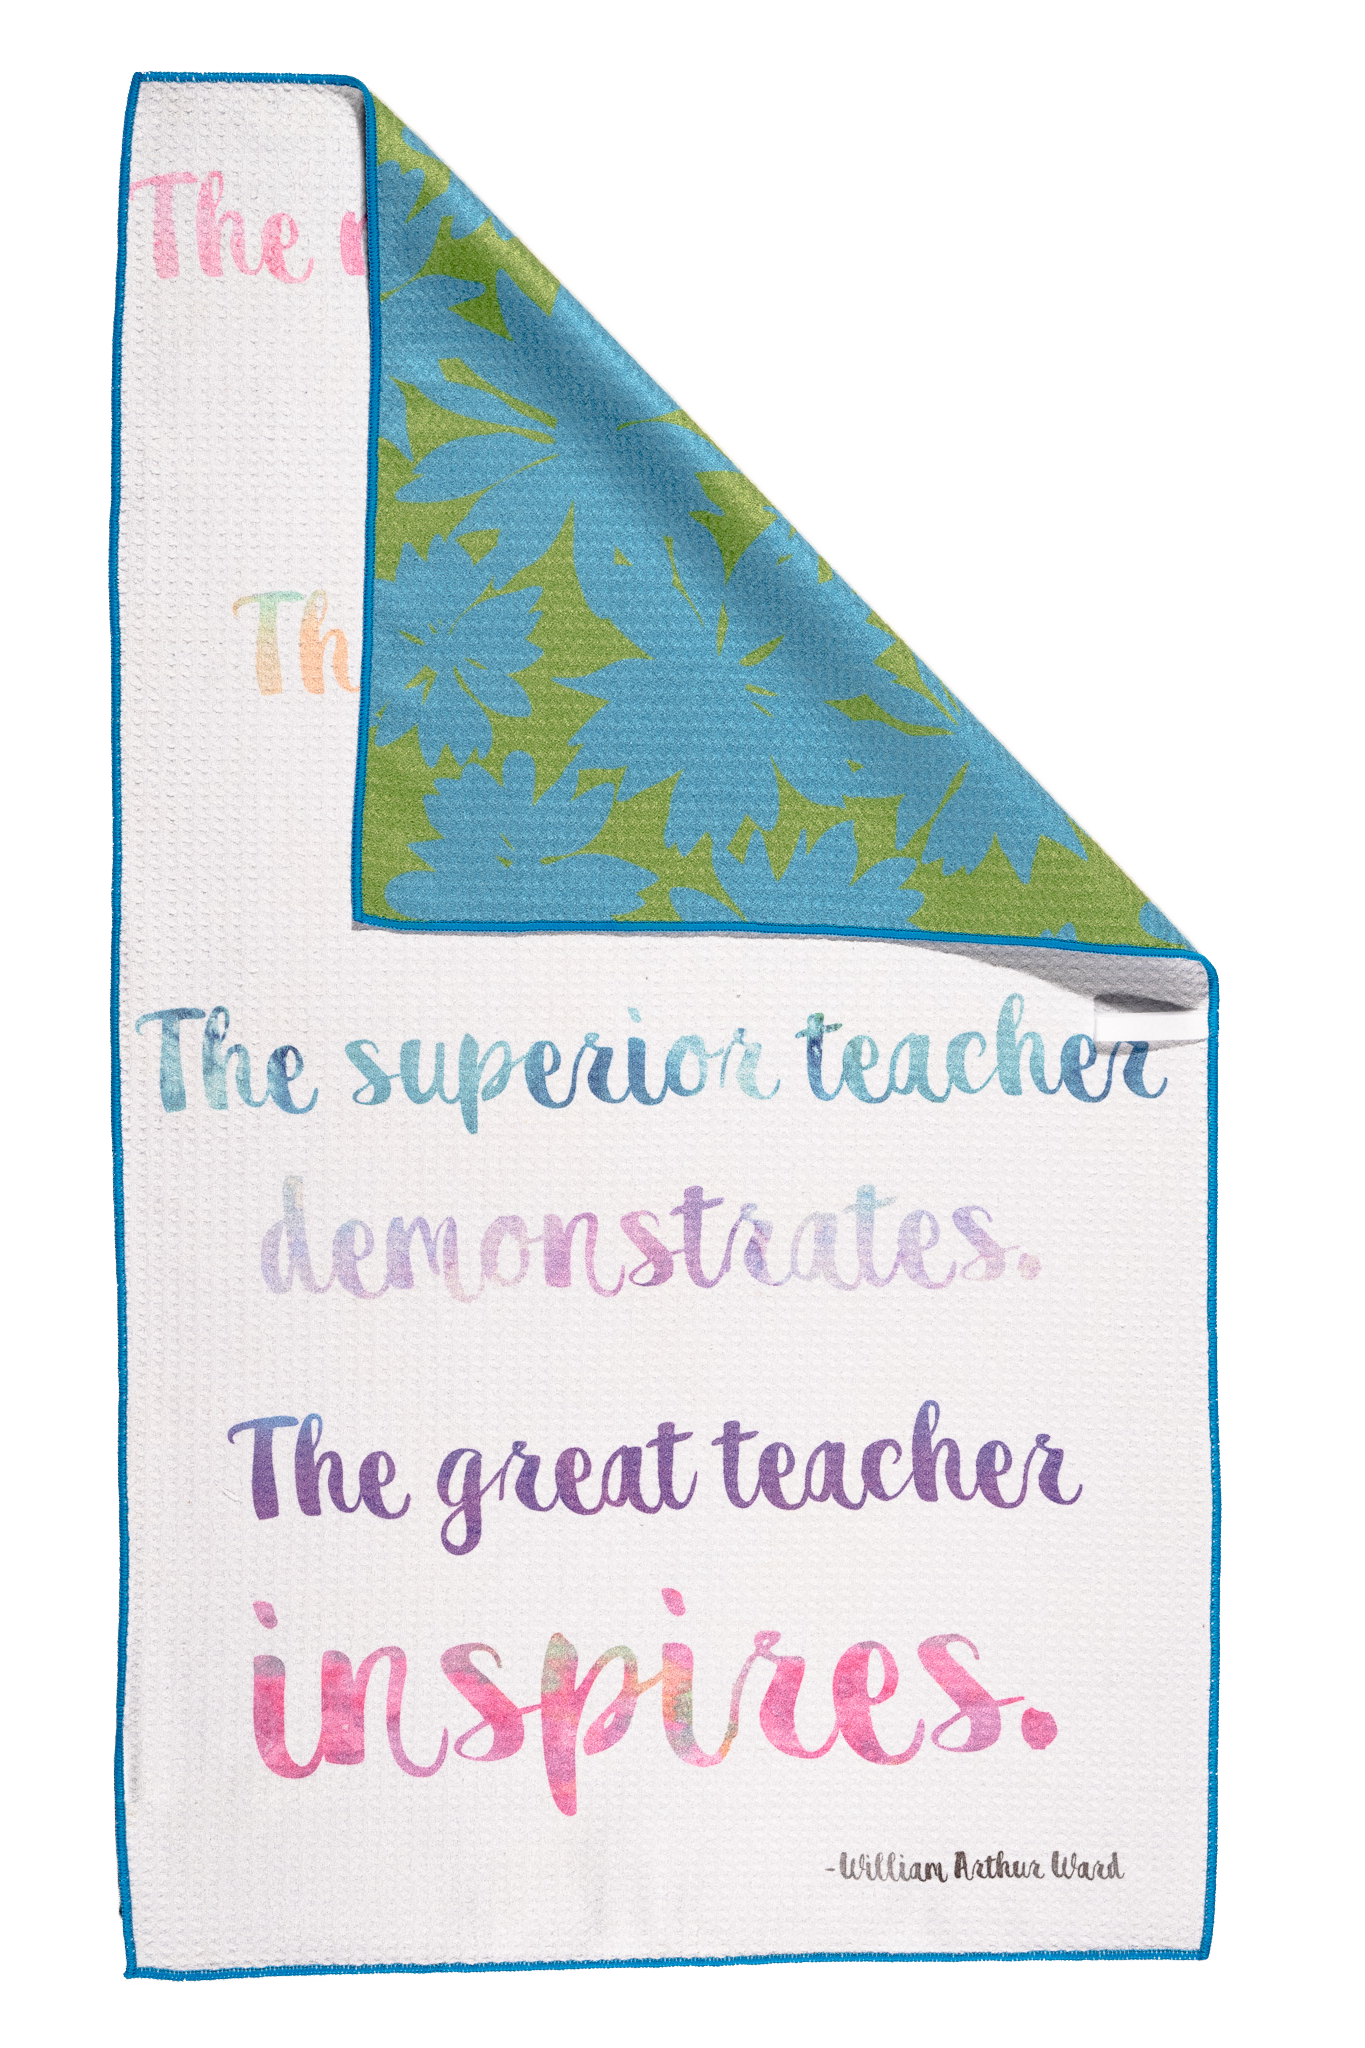 The
The superior teacher
demonstrates.
The great teacher
inspires.
-William Arthur Ward